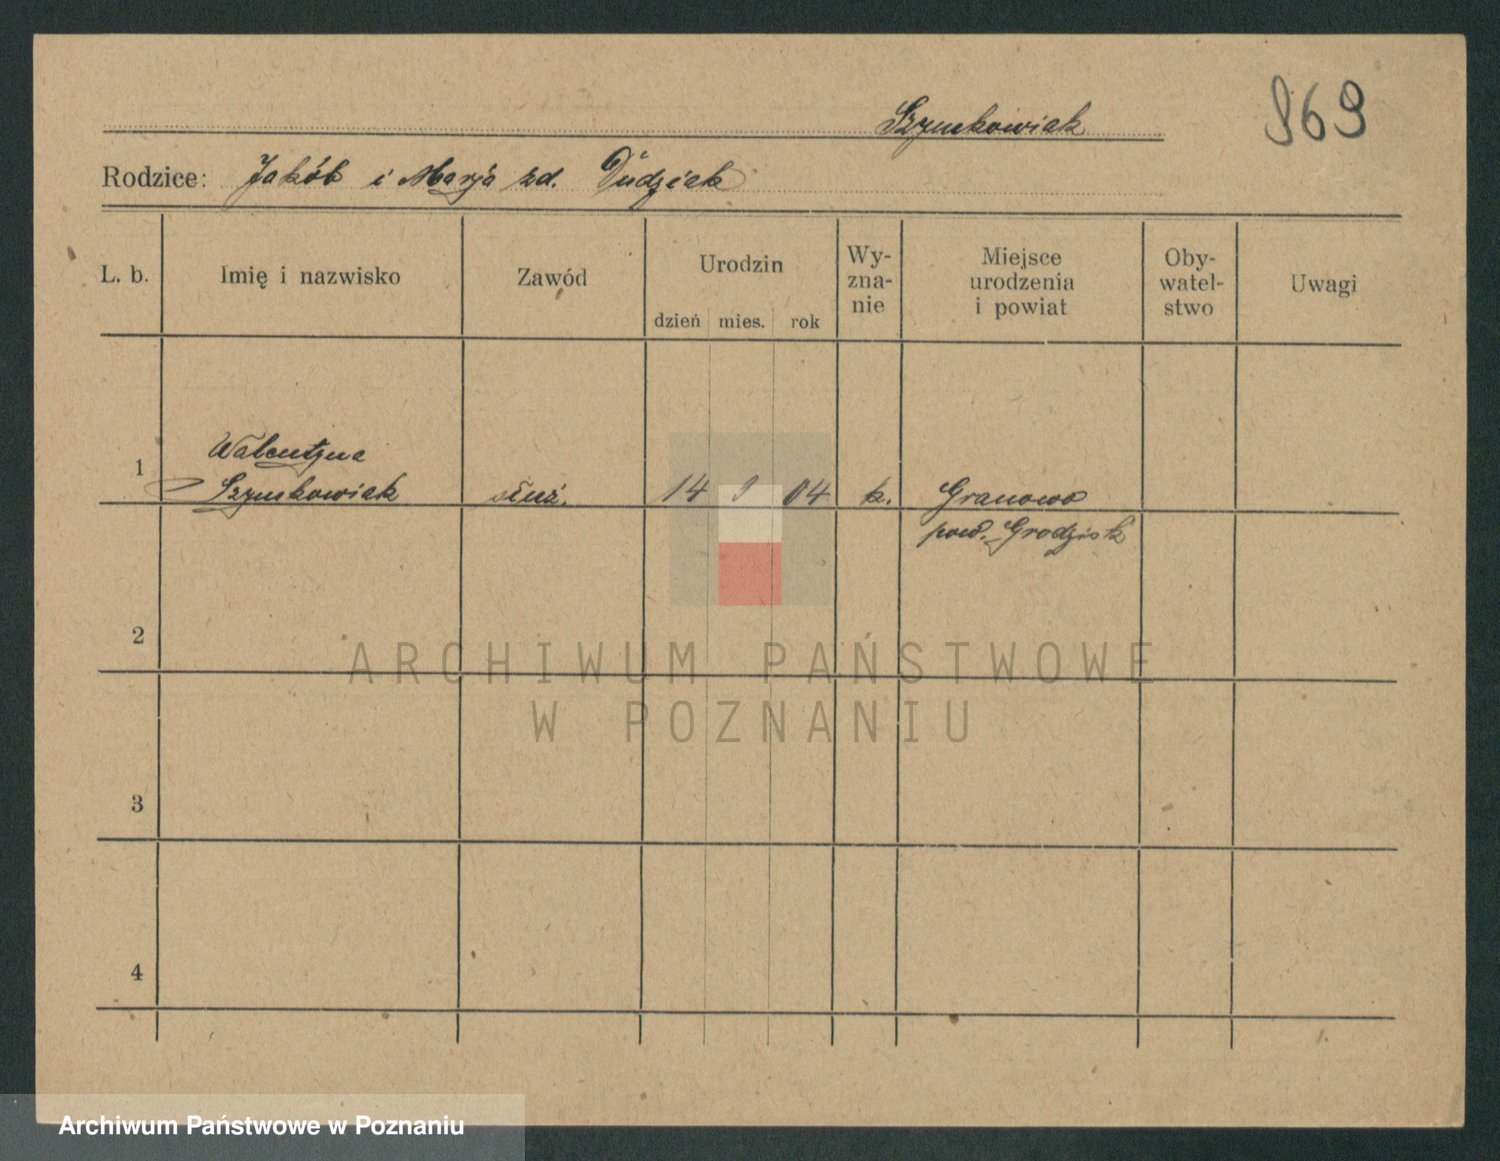 969
Szymkowiak
Rodzice: Jakób i Marja zd. Dudziak
L. b. Imię i nazwisko Zawód Urodzin dzień mies. rok Wy-zna-nie Miejsce urodzenia i powiat Oby-watel-stwo Uwagi
1 Walentyna
Szymkowiak służ. 14 04 k. Granowo
pow. Grodzisk
2
3
4
ARCHIWUM PAŃSTWOWE
W POZNANIU
Archiwum Państwowe w Poznaniu